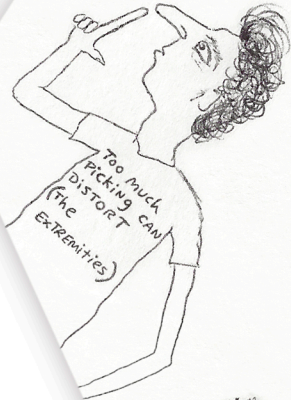 Too much
Picking can
DISTORT
(The
ExTREMities)